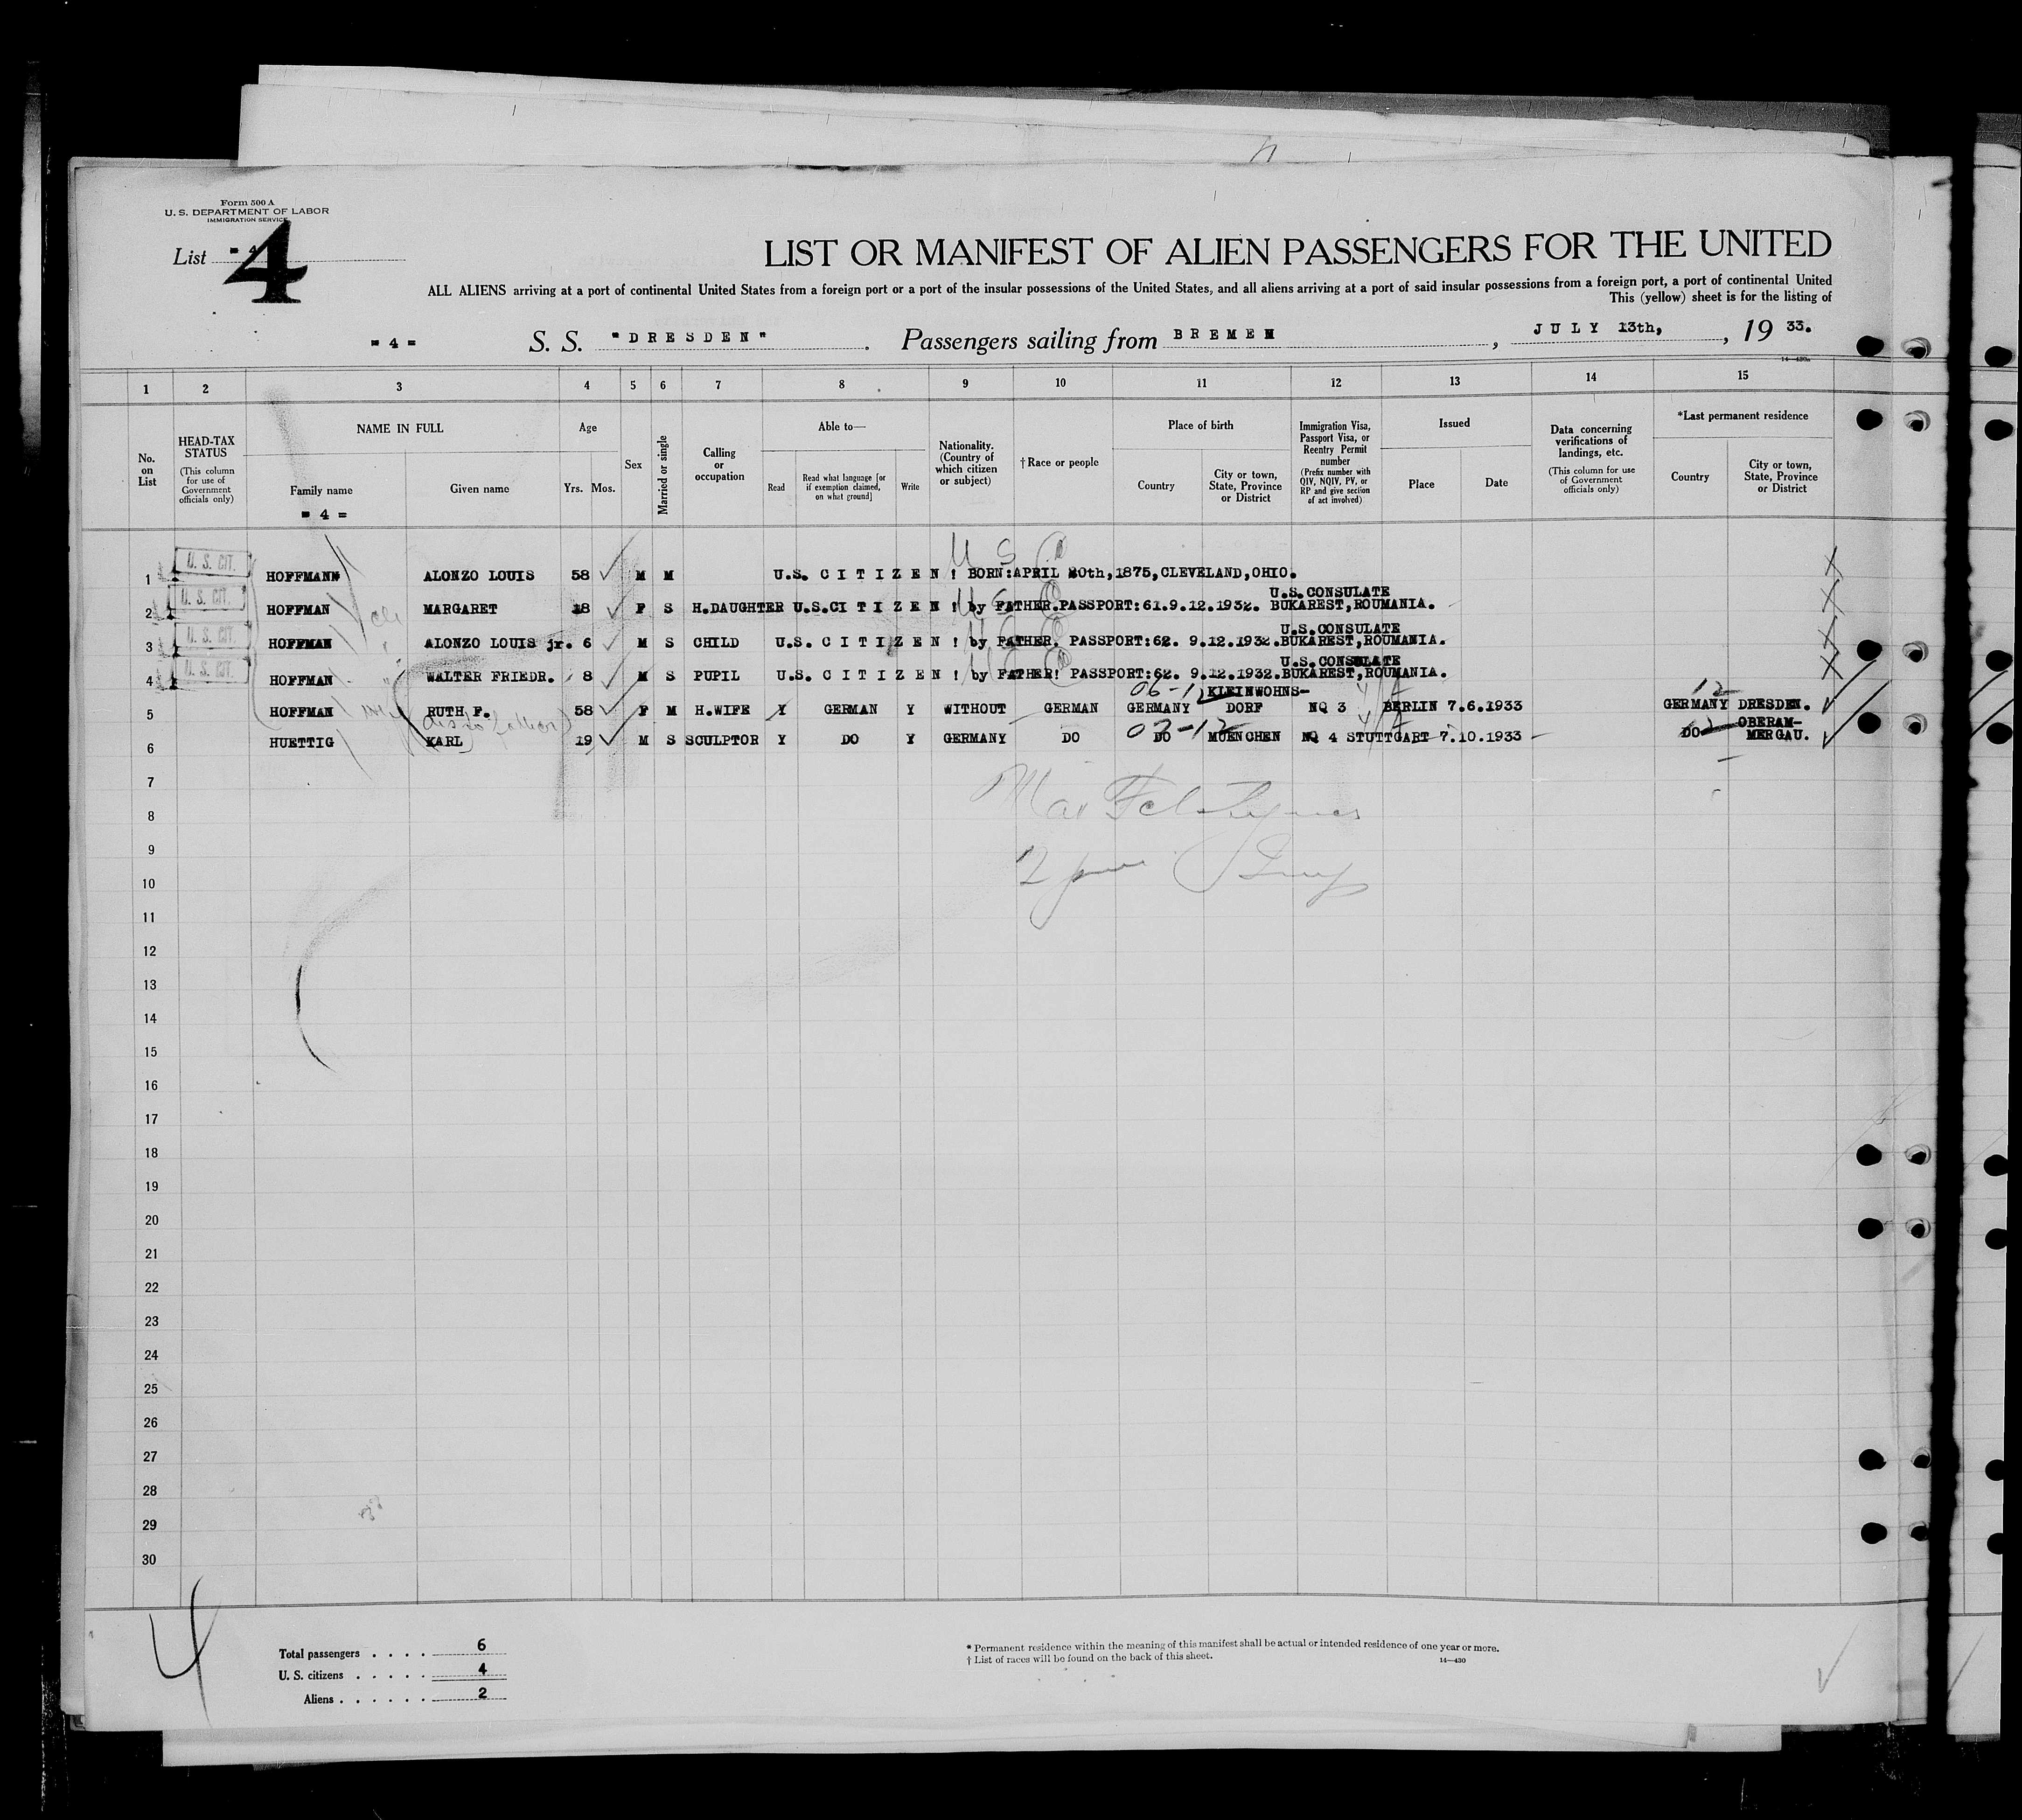 Form 500 A
U. S. DEPARTMENT OF LABOR
IMMIGRATION SERVICE
List = 4
4
LIST OR MANIFEST OF ALIEN PASSENGERS FOR THE UNITED
ALL ALIENS arriving at a port of continental United States from a foreign port or a port of the insular possessions of the United States, and all aliens arriving at a port of said insular possessions from a foreign port, a port of continental United
This (yellow) sheet is for the listing of
= 4 = S. S. "DRESDEN". Passengers sailing from BREMEN, JULY 13th, , 19 33.
14—430a
1 2 3 4 5 6 7 8 9 10 11 12 13 14 15
No. on List
HEAD-TAX STATUS (This column for use of Government officials only)
NAME IN FULL
Family name
= 4 =
Given name
Age
Yrs. Mos.
Sex
Married or single
Calling or occupation
Able to—
Read
Read what language [or if exemption claimed, on what ground]
Write
Nationality. (Country of which citizen or subject)
† Race or people
Place of birth
Country
City or town, State, Province or District
Immigration Visa, Passport Visa, or Reentry Permit number (Prefix number with QIV, NQIV, PV, or RP and give section of act involved)
Issued
Place
Date
Data concerning verifications of landings, etc. (This column for use of Government officials only)
*Last permanent residence
Country
City or town, State, Province or District
U S C
1 U. S. CIT. HOFFMANN ALONZO LOUIS 58 M M U.S. CITIZEN! BORN:APRIL 20th,1875,CLEVELAND,OHIO.
U.S.CONSULATE
2 U. S. CIT. HOFFMAN MARGARET 18 F S H.DAUGHTER U.S.CITIZEN! by FATHER.PASSPORT:61.9.12.1932. BUKAREST,ROUMANIA.
U.S.CONSULATE
3 U. S. CIT. HOFFMAN ALONZO LOUIS jr. 6 M S CHILD U.S. CITIZEN! by FATHER. PASSPORT:62. 9.12.1932.BUKAREST,ROUMANIA.
U.S.CONSULATE
4 U. S. CIT. HOFFMAN WALTER FRIEDR. 8 M S PUPIL U.S. CITIZEN! by FATHER! PASSPORT:62. 9.12.1932.BUKAREST,ROUMANIA.
06-12 KLEINWOHNS- 12
5 HOFFMAN RUTH F. 58 F M H.WIFE Y GERMAN Y WITHOUT GERMAN GERMANY DORF NQ 3 BERLIN 7.6.1933 GERMANY DRESDEN.
OBERAM-
6 HUETTIG KARL 19 M S SCULPTOR Y DO Y GERMANY DO DO MUENCHEN NQ 4 STUTTGART 7.10.1933 DO MERGAU.
7
8
9
10
11
12
13
14
15
16
17
18
19
20
21
22
23
24
25
26
27
28
29
30
4
Total passengers . . . . 6
U. S. citizens . . . . . 4
Aliens . . . . . . 2
* Permanent residence within the meaning of this manifest shall be actual or intended residence of one year or more.
† List of races will be found on the back of this sheet.
14—430